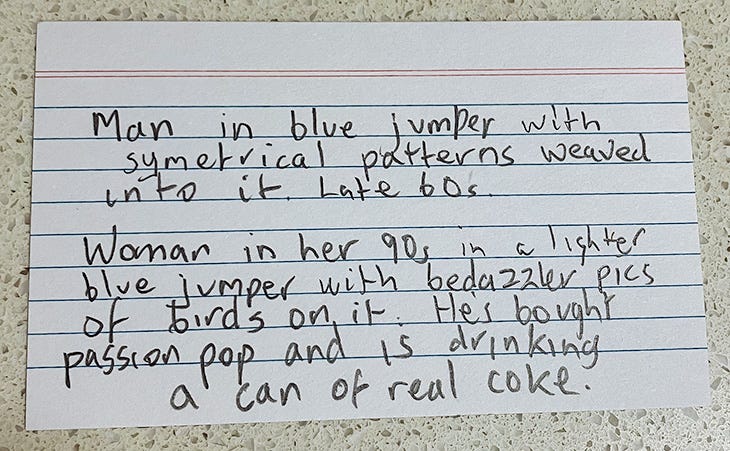 Man in blue jumper with
symetrical patterns weaved
into it. Late 60s.
Woman in her 90s in a lighter
blue jumper with bedazzler pics
of birds on it. He's bought
passion pop and is drinking
a can of real coke.